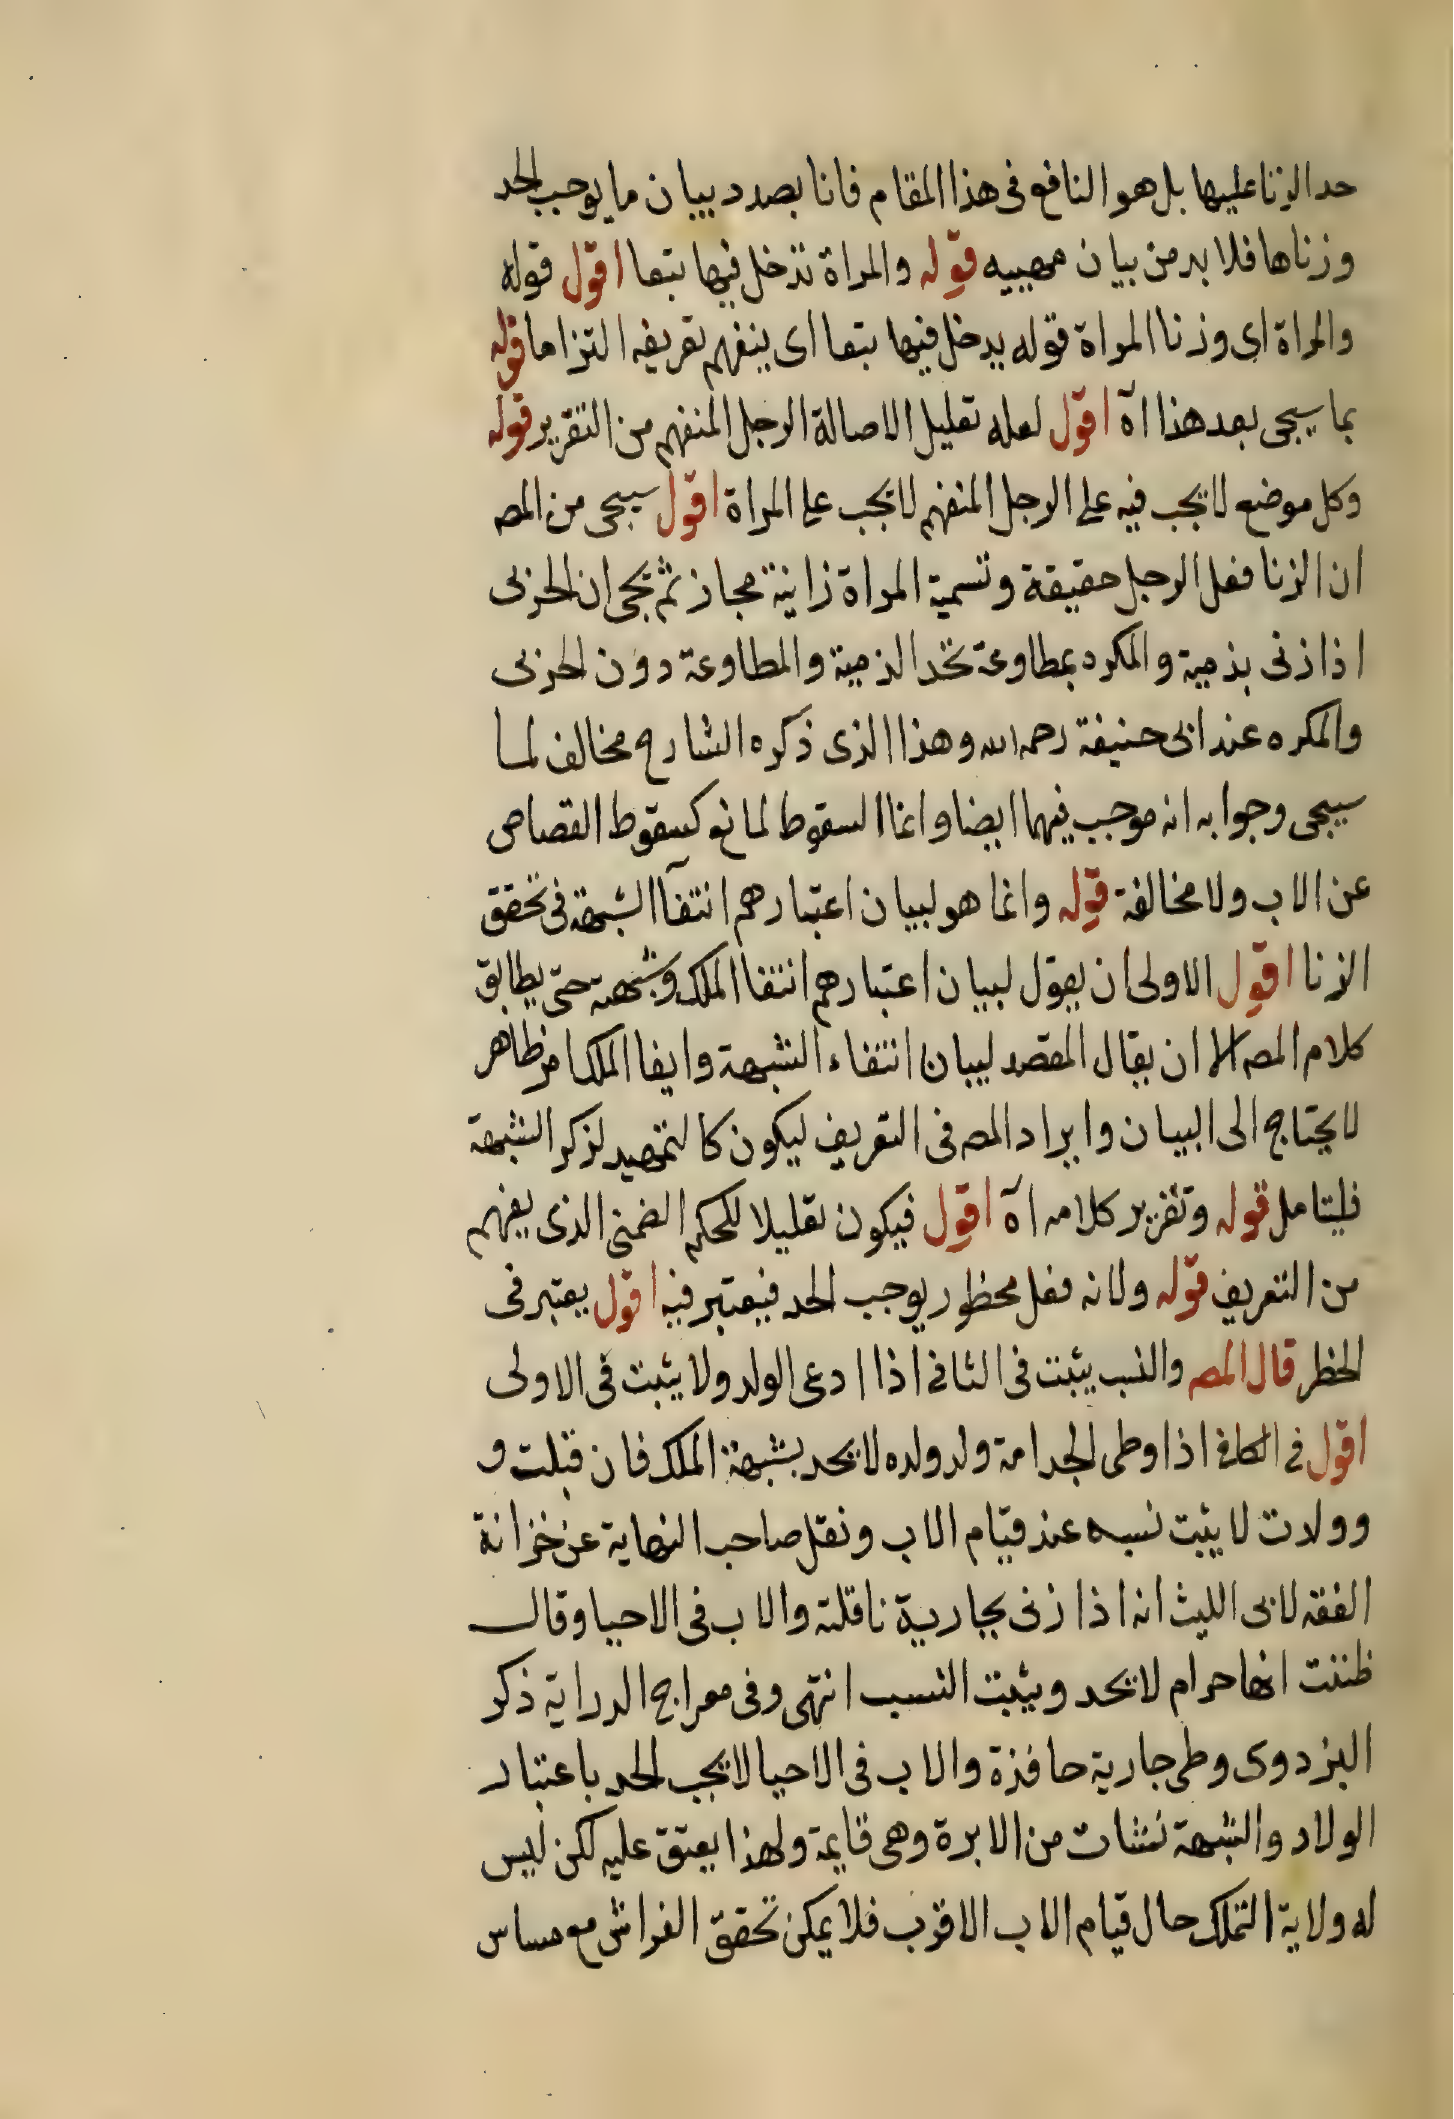 حد الزنا عليها بل هو النافع فى هذا المقام فانا بصدد بيان ما يوجب الحد
وزناها فلا بد من بيان مهييه قوله والمراة تدخل فيها بتعا اقول قوله
والمراة اى وزنا المراة قوله يدخل فيها بتعا اى ينفهم تعريفه التزاما قوله
بما سيجى بعد هذا آه اقول لعله تعليل الاصالة الرجل المنفهم من التقرير قوله
وكل موضع لا يجب فيه على الرجل المنفهم لا يجب على المراة اقول سيجى من المص
ان الزنا فعل الرجل حقيقة وتسمية المراة زانية مجاز ثم يجى ان الحربى
اذا زنى بذمية والمكره بمطاوعة تحد الذمية والمطاوعة دون الحربى
والمكره عند ابى حنيفة رحمه الله وهذا الذى ذكره الشارح مخالف لما
سيجى وجوابه انه موجب فيهما ايضا وانما السقوط لمانع كسقوط القصاص
عن الاب ولا مخالفة قوله وانما هو لبيان اعتبارهم انتفآ الشبهة فى تحقق
الزنا اقول الاولى ان يقول لبيان اعتبارهم انتفا الملك وشبهته حتى يطابق
كلام المص الا ان يقال المقصد لبيان انتفاء الشبهة وايفا الملك امر ظاهر
لا يحتاج الى البيان وايراد المص فى التعريف ليكون كالتمهيد لذكر الشبهة
فليتامل قوله وتقرير كلامه آه اقول فيكون تعليلا للحكم الضمنى الذى يفهم
من التعريف قوله ولانه فعل محظور يوجب الحد فيعتبر فيه اقول يعتبر فى
الحظر قال المص والنسب يثبت فى الثانى اذا ادعى الولد ولا يثبت فى الاولى
اقول فى الكافى اذا وطى الجد امة ولد ولده لا يحد بشبهة الملك فان قبلت و
وولدت لا يثبت نسبه عند قيام الاب ونقل صاحب النهاية عن خزانة
الفقه لابى الليث انه اذا زنى بجارية نافلته والاب فى الاحيا وقال
ظننت انها حرام لا يحد ويثبت النسب انتهى وفى معراج الدراية ذكر
البزدوى وطى جارية حافدة والاب فى الاحيا لا يجب الحد باعتبار
الولاد والشبهة نشات من الابوة وهى قايمة ولهذا يعتق عليه لكن ليس
له ولاية التملك حال قيام الاب الاقرب فلا يمكن تحقق الفراش مع مساس